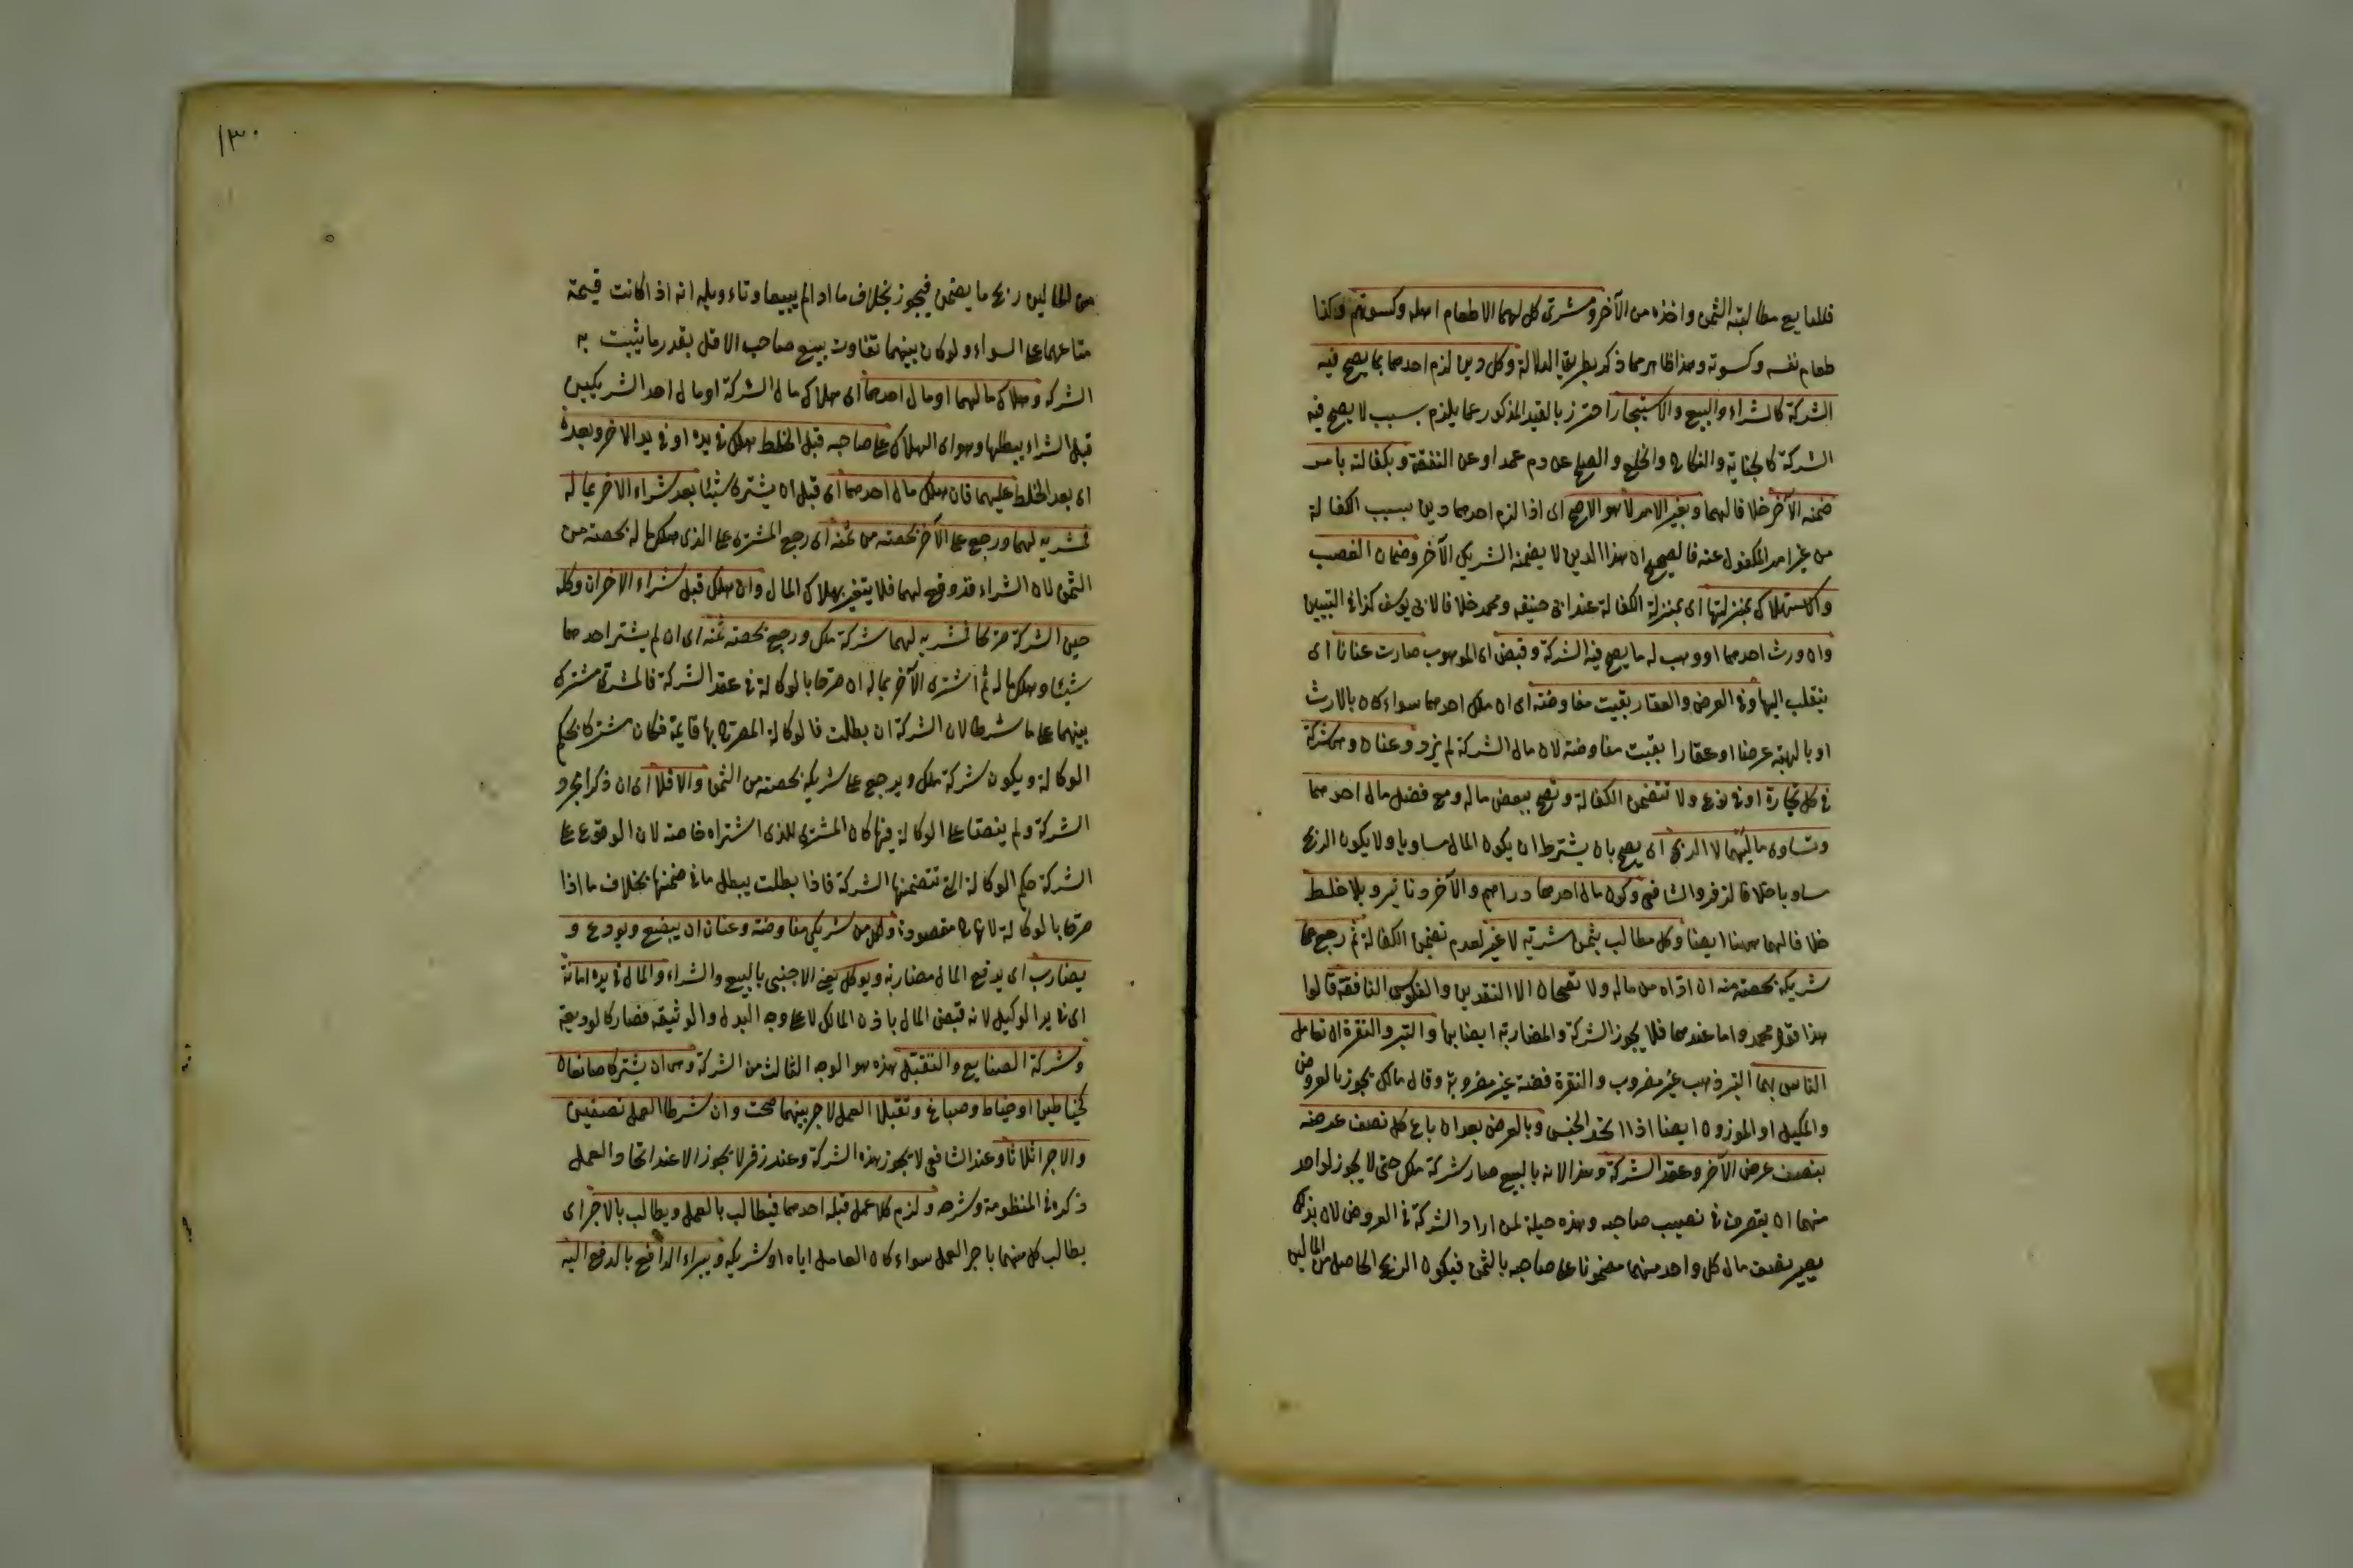 فللبايع مطالبته الثمن واخذه من الآخر ومشترى كل لهما الا طعام اهله وكسوتهم وكذا
طعام نفسه وكسوته وهذا ظاهر مما ذكر بطريق الدلالة وكل دين لزم احدهما بما يصح فيه
الشركة كالشراء والبيع والاستيجار احترز بالقيد المذكور عما يلزم بسبب لا يصح فيه
الشركة كالجناية والنكاح والخلع والصلح عن دم عمد او عن النفقة وبكفالته بامر
ضمنه الآخر خلافا لهما وبغير الامر لا هو الاصح اى اذا لزم احدهما دين بسبب الكفالة
من غير امر المكفول عنه فالصحيح ان هذا الدين لا يضمنه الشريك الآخر وضمان الغصب
والاستهلاك بمنزلتها اى بمنزلة الكفالة عند ابى حنيفه ومحمد خلافا لابى يوسف كذا فى التبيين
وان ورث احدهما او وهب له ما يصح فيه الشركة وقبض اى الموهوب صارت عنانا اى
ينقلب اليها وفى العرض والعقار بقيت مفاوضته اى ان ملك احدهما سواء كان بالارث
او بالهبة عرضا او عقارا بقيت مفاوضة لان مال الشركة لم يزد وعنان وهى شركة
فى كل تجارة او فى نوع ولا تتضمن الكفالة وتصح ببعض ماله ومع فضل مال احدهما
وتساوى ماليهما لا الربح اى يصح بان يشترط ان يكون المال مساويا ولا يكون الربح
مساويا خلافا لزفر والشافى وكون مال احدهما دراهم والآخر دنانير وبلا خلط
خلافا لهما ههنا ايضا وكل مطالب بثمن مشريه لا غير لعدم تضمن الكفالة ثم رجع على
شريكه بحصته منه ان اداه من ماله ولا تصحان الا بالنقدين والفلوس النافقة قالوا
هذا قول محمد واما عندهما فلا يجوز الشركة والمضاربة ايضا بها والتبر والنقرة ان تعامل
الناس بهما التبر ذهب غير مضروب والنقرة فضة غير مضروبة وقال مالك يجوز بالعروض
والمكيل او الموزون ايضا اذا اتحد الجنس وبالعرض بعد ان باع كل نصف عرضه
بنصف عرض الآخر وعقد الشركة وهذا لانه بالبيع صار شركة ملك حتى لا يجوز لواحد
منهما ان يتصرف فى نصيب صاحبه وهذه حيلة لمن اراد الشركة فى العروض لان بذلك
يصير نصف مال كل واحد منهما مضمونا على صاحبه بالثمن فيكون الربح الحاصل من المالين
١٣٠
من المالين ربح ما يضمن فيجوز بخلاف ما اذا لم يبيعا وتاءويله انه اذا كانت قيمة
متاعهما على السواء ولو كان بينهما تفاوت بيع صاحب الاقل بقدر ما يثبت به
الشركه وهلاك مالهما او مال احدهما اى هلاك مال الشركة او مال احد الشريكين
قبل الشراء يبطلها وهو اى الهلاك على صاحبه قبل الخلط هلك فى يده او فى يد الاخر وبعده
اى بعد الخلط عليهما فان هلك مال احدهما اى قبل ان يشترى شيئا بعد شراء الاخر بماله
فمشريه لهما ورجع على الآخر بحصته من ثمنه اى رجع المشترى على الذى هلك ماله بحصته من
الثمن لان الشراء قد وقع لهما فلا يتغير بهلاك المال وان هلك قبل شراء الاخر ان وكله
حين الشركة صريحا فمشريه لهما شركة ملك ورجع بحصته ثمنه اى ان لم يشتر احدهما
شيئا وهلك ماله ثم اشترى الآخر بماله ان صرحا بالوكالة فى عقد الشركة فالمشترى مشترك
بينهما على ما شرطا لان الشركة ان بطلت فالوكالة المصرح بها قايمة فكان مشتركا بحكم
الوكالة ويكون شركة ملك ويرجع على شريكه بحصته من الثمن والا فلا اى ان ذكرا مجرد
الشركة ولم ينصا على الوكالة فيها كان المشترى للذى اشتراه خاصة لان الوقوع على
الشركة حكم الوكالة التى تتضمنها الشركة فاذا بطلت يبطل ما فى ضمنها بخلاف ما اذا
صرحا بالوكالة لانها مقصودة ولكل من شريكى مفاوضته وعنان ان يبضع ويودع و
يضارب اى يدفع المال مضاربة ويوكل يعنى الاجنبى بالبيع والشراء والمال فى يده امانة
اى فى يد الوكيل لانه قبض المال باذن المالك لا على وجه البدل والوثيقه فصار كالوديعة
وشركة الصنايع والتقبل هذه هو الوجه الثالث من الشركة وهى ان يشترك صانعان
كخياطين او خياط وصباغ وتقبلا العمل لاجر بينهما صحت وان شرطا العمل نصفين
والاجر اثلاثا وعند الشافى لا يجوز هذه الشركة وعند زفر لا يجوز الا عند اتحاد العمل
ذكره فى المنظومة وشرحه ولزم كلا عمل قبله احدهما فيطالب بالعمل ويطالب بالاجر اى
يطالب كل منهما باجر العمل سواء كان العامل اياه او شريكه ويبراء الدافع بالدفع اليه